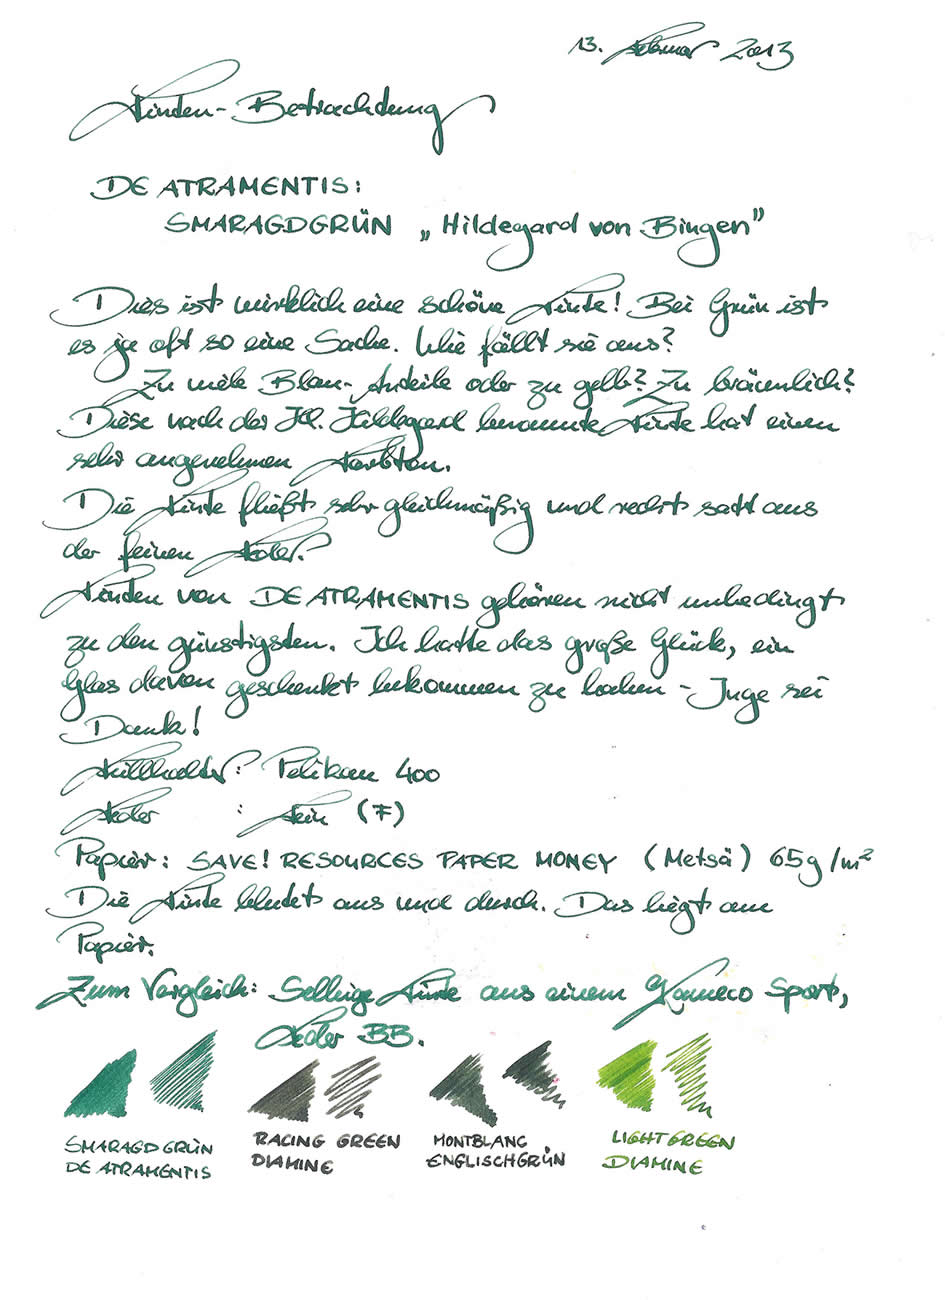 13. Februar 2013
Tinten-Betrachtung
DE ATRAMENTIS:
SMARAGDGRÜN „Hildegard von Bingen"
Dies ist wirklich eine schöne Tinte! Bei Grün ist
es ja oft so eine Sache. Wie fällt sie aus?
Zu viele Blau-Anteile oder zu gelb? Zu bräunlich?
Diese nach der Hl. Hildegard benannte Tinte hat einen
sehr angenehmen Farbton.
Die Tinte fließt sehr gleichmäßig und recht satt aus
der feinen Feder.
Tinten von DE ATRAMENTIS gehören nicht unbedingt
zu den günstigsten. Ich hatte das große Glück, ein
Glas davon geschenkt bekommen zu haben - Inge sei
Dank!
Füllhalter: Pelikan 400
Feder : Fein (F)
Papier: SAVE! RESOURCES PAPER MONEY (Metsä) 65g/m²
Die Tinte blutet aus und durch. Das liegt am
Papier.
Zum Vergleich: Selbige Tinte aus einem Kaweco Sport,
Feder BB.
SMARAGDGRÜN
DE ATRAMENTIS
RACING GREEN
DIAMINE
MONTBLANC
ENGLISCHGRÜN
LIGHTGREEN
DIAMINE